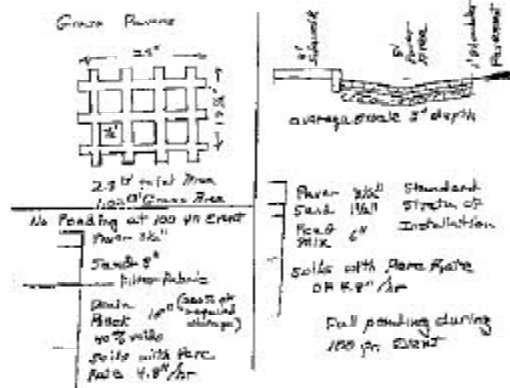 Grass Pavers
23"
15 3/4"
2.3 ▫' total Area
Grass Area
No Ponding at 100 yr Event
Paver 3½"
Sand 8"
Filter Fabric
Drain
Rock
40% voids
required
storage)
Soils with Perc
Rate 4.8"/hr
4' Sidewalk
Paver
Area
Pavement
average swale 3" depth
Paver 3½" Standard
Sand 1½" Stretch of
Mix 6" Installation
Soils with Perc Rate
OF 4.8"/hr
Full ponding during
100 yr Event